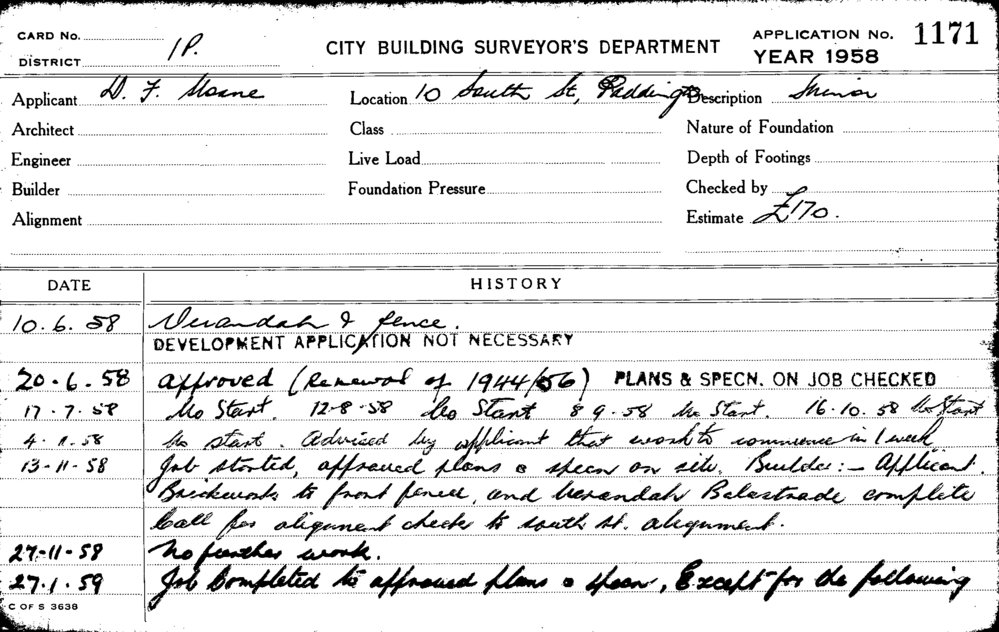 CARD No. CITY BUILDING SURVEYOR'S DEPARTMENT APPLICATION No. 1171
DISTRICT 1P. YEAR 1958
Applicant D. F. Location 10 South St, Paddington Description Minor
Architect Class Nature of Foundation
Engineer Live Load Depth of Footings
Builder Foundation Pressure Checked by
Alignment Estimate £170.
DATE HISTORY
10.6.58 Verandah & fence.
DEVELOPMENT APPLICATION NOT NECESSARY
20.6.58 approved (Renewal of 1944/56) PLANS & SPECN. ON JOB CHECKED
17.7.58 No Start. 12-8-58 No Start 8 9.58 No Start. 16.10.58 No Start
4.11.58 No start. Advised by applicant that work to commence in 1 week
13-11-58 Job started, approved plans & specn on site. Builder:- Applicant.
Brickwork to front fence, and Verandah Balastrade complete
Call for alignment check to south st. alignment.
27-11-58 No further work.
27.1.59 Job Completed to approved plans & specn, Except for the following
C OF S 3638